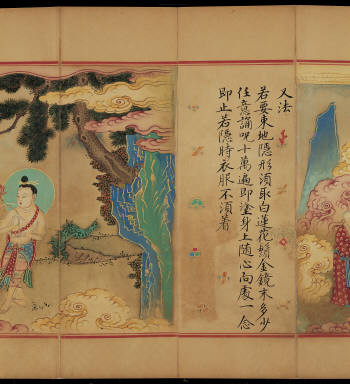 又法
若要東地隱形須取白蓮花鬚金鏡末多少
任意誦呪十萬遍即塗身上隨心向處一念
即止若隱時衣服不須着